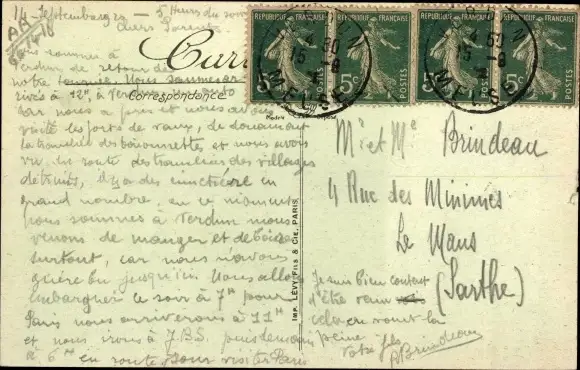 14 Septembre 20 - 5 heures du soir
Chers Parents
Nous sommes à
Verdun de retour de
notre tournée. Nous sommes ar
rivés à 12h à Verdun
car nous a pris et nous avons
visité les forts de Vaux, de Douaumont
la tranchée des baïonnettes et nous avons
vu en route des tranchées des villages
détruits, il y a des cimetières en
grand nombre, en ce moment
nous sommes à Verdun nous
venons de manger et de boire
surtout, car nous n'avons
guère bu jusqu'ici. Nous allons
embarquer le soir à 7h pour
Paris nous arriverons à 11h
et nous irons à J.B.S. puis demain
à 6h en route pour visiter Paris
Carte
Correspondance
REPUBLIQUE FRANÇAISE
5c POSTES
REPUBLIQUE FRANÇAISE
5c POSTES
REPUBLIQUE FRANÇAISE
5c POSTES
REPUBLIQUE FRANÇAISE
5c POSTES
VERDUN
4 50
15 -9
MEUSE
VERDUN
4 50
15 -9
MEUSE
IMP. LÉVY FILS & CIE, PARIS
Mr et Me Brindeau
4 Rue des Minimes
Le Mans
(Sarthe)
Je suis bien content
d'être venu
cela en vaut la
peine
Votre fils
Brindeau